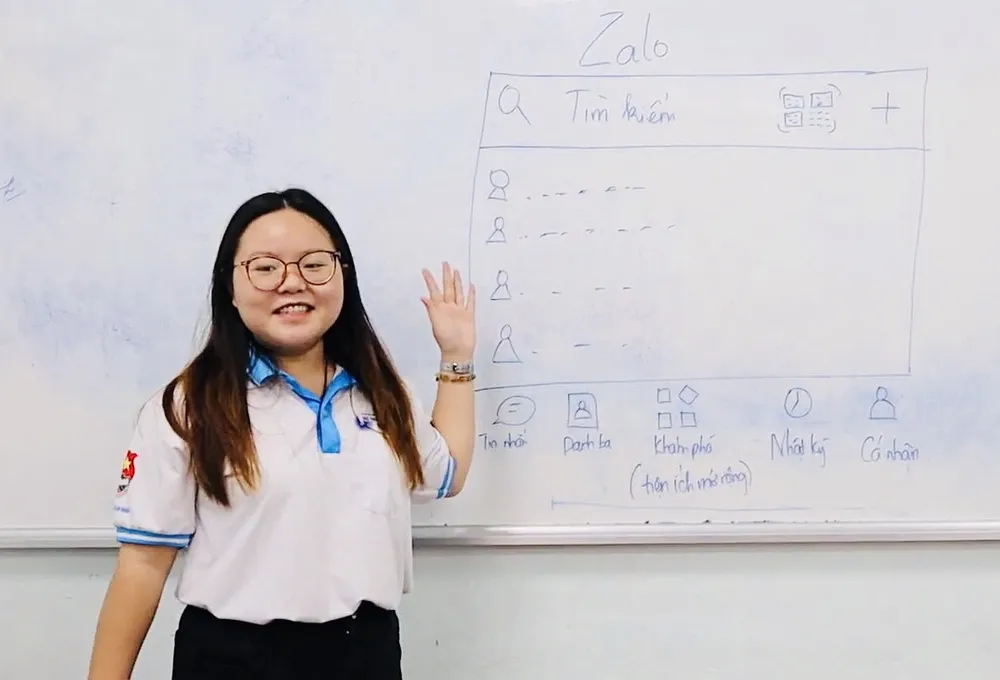 Zalo
Tìm kiếm
Tin nhắn Danh bạ Khám phá Nhật ký Cá nhân
(tiện ích mở rộng)